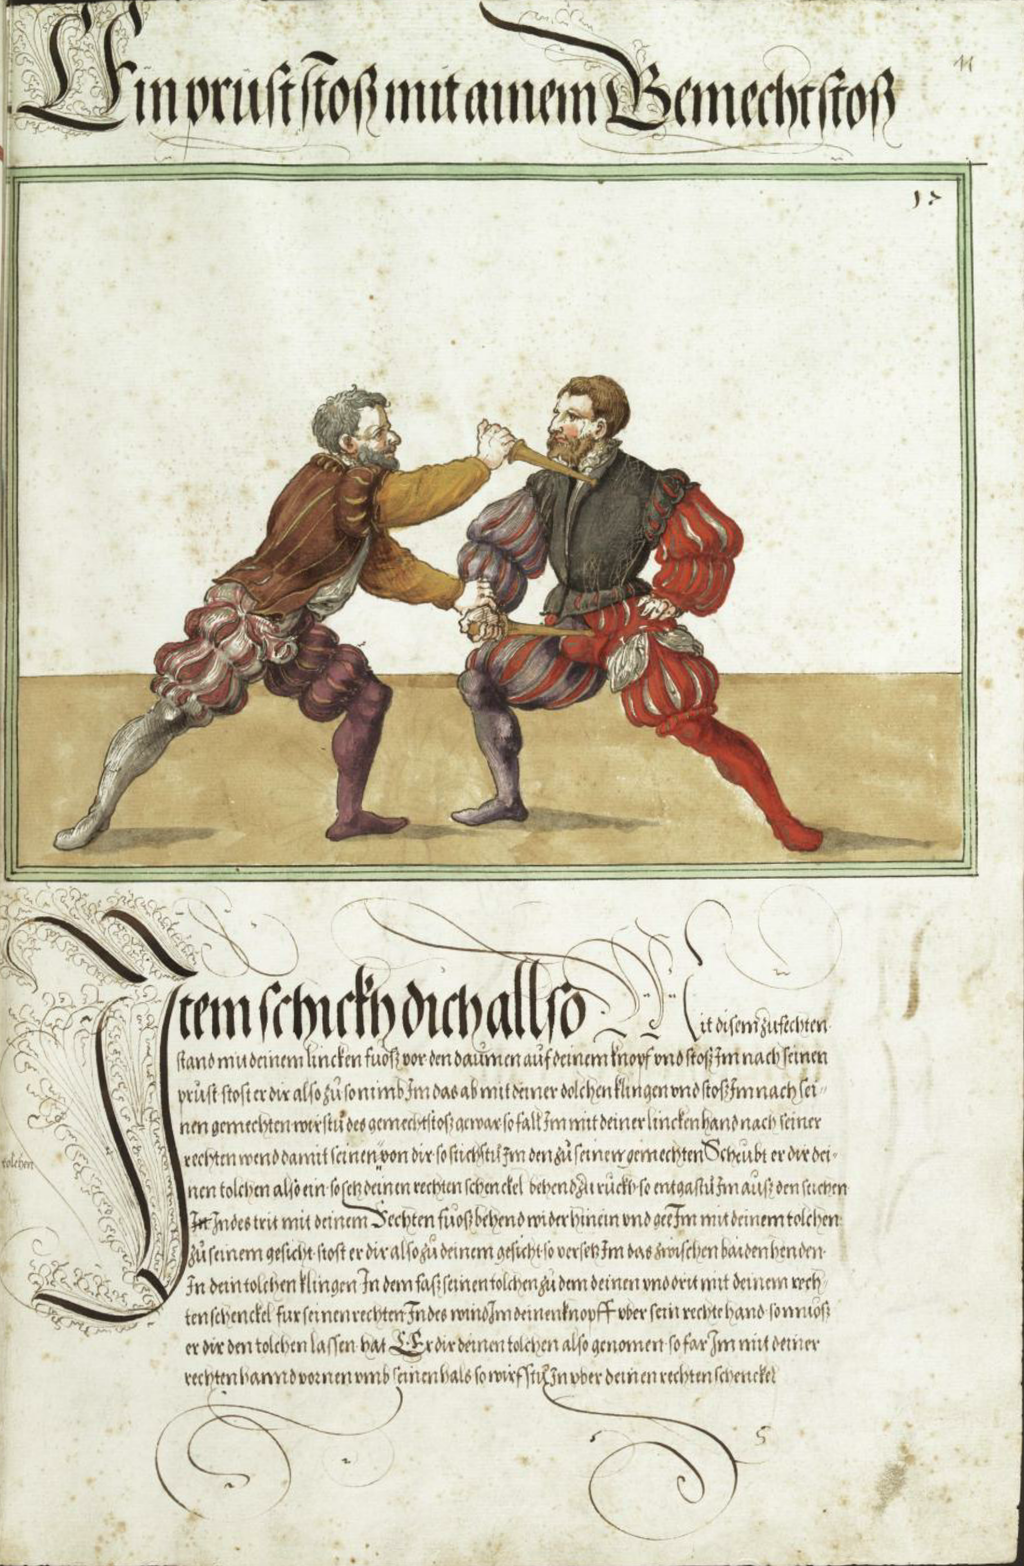 Ein prust stoß mit ainem Gemecht stoß
11
17
Item schickh dich allso Mit disem zufechten
stand mit deinem lincken fuoß vor den daumen auf deinem knopf vnd stoß Im nach seinen
prust stost er dir also zů so nimb Im das ab mit deiner dolchen klingen vnd stoß Im nach sei=
nen gemechten wirstů des gemecht stoß gewar so fall Im mit deiner lincken hand nach seiner
tolchen
rechten wend damit seinen von dir so stichstů Im den zů seinen gemechten Scheubt er dir dei=
nen tolchen also ein so setz deinen rechten schenckel behend zů rückh so entgastů Im auß den stichen
In Indes trit mit deinem Rechten fuoß behend wider hinein vnd gee Im mit deinem tolchen
zů seinem gesicht stost er dir also zů deinem gesicht so versetz Im das zwischen baiden henden
In dein tolchen klingen In dem faß seinen tolchen zů dem deinen vnd drit mit deinem rech=
ten schenckel fur seinen rechten Indes wind Im deinen knopff vber sein rechte hand so muoß
er dir den tolchen lassen hat E. Er dir deinen tolchen also genomen so far Im mit deiner
rechten hannd vornen vmb seinen hals so wirfstů In vber deinen rechten schenckel
5